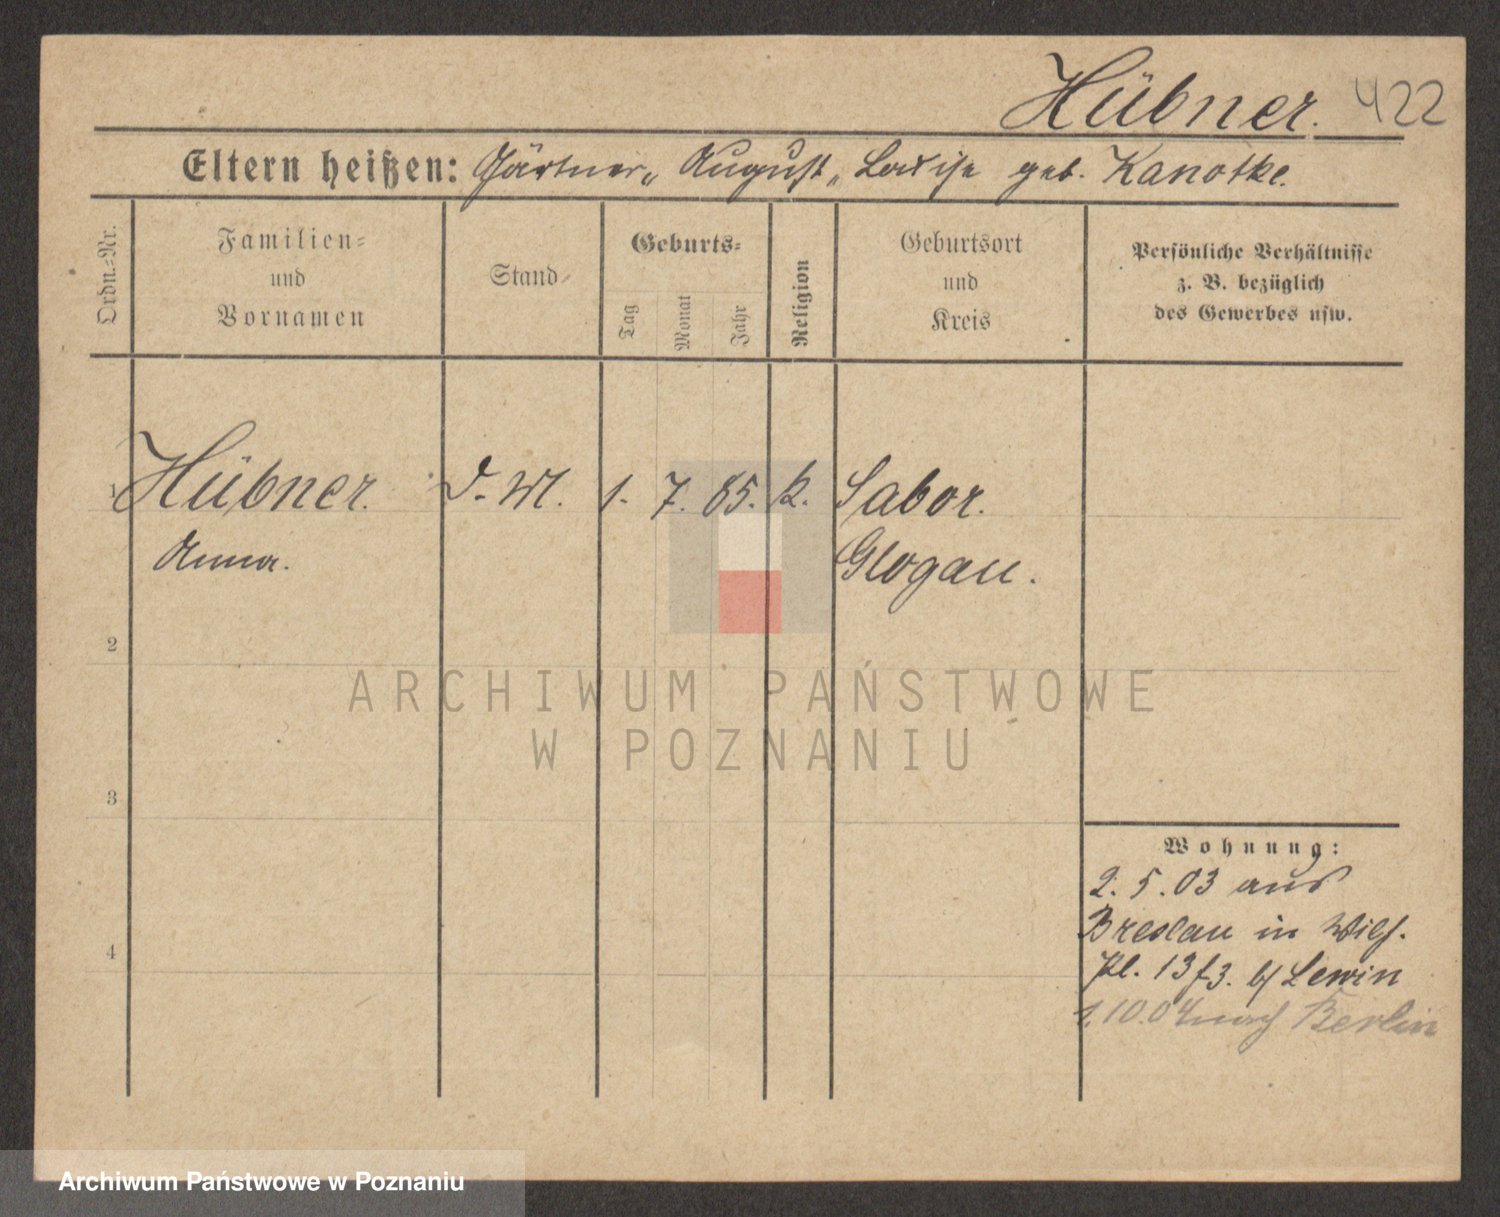 Hübner. 422
Eltern heißen: Gärtner „ August „ Louise geb. Kanotke.
Ordn.=Nr.
Familien=
und
Vornamen
Stand
Geburts=
Tag
Monat
Jahr
Religion
Geburtsort
und
Kreis
Persönliche Verhältnisse
z. B. bezüglich
des Gewerbes usw.
1 Hübner. 1. 7. 85. k. Sabor.
Anna. Glogau.
2
3
4
Wohnung:
2. 5. 03 aus
Breslau in Wilh.
Pl. 13 f3. b/ Lewin
1.10.04 nach Berlin
ARCHIWUM PAŃSTWOWE
W POZNANIU
Archiwum Państwowe w Poznaniu